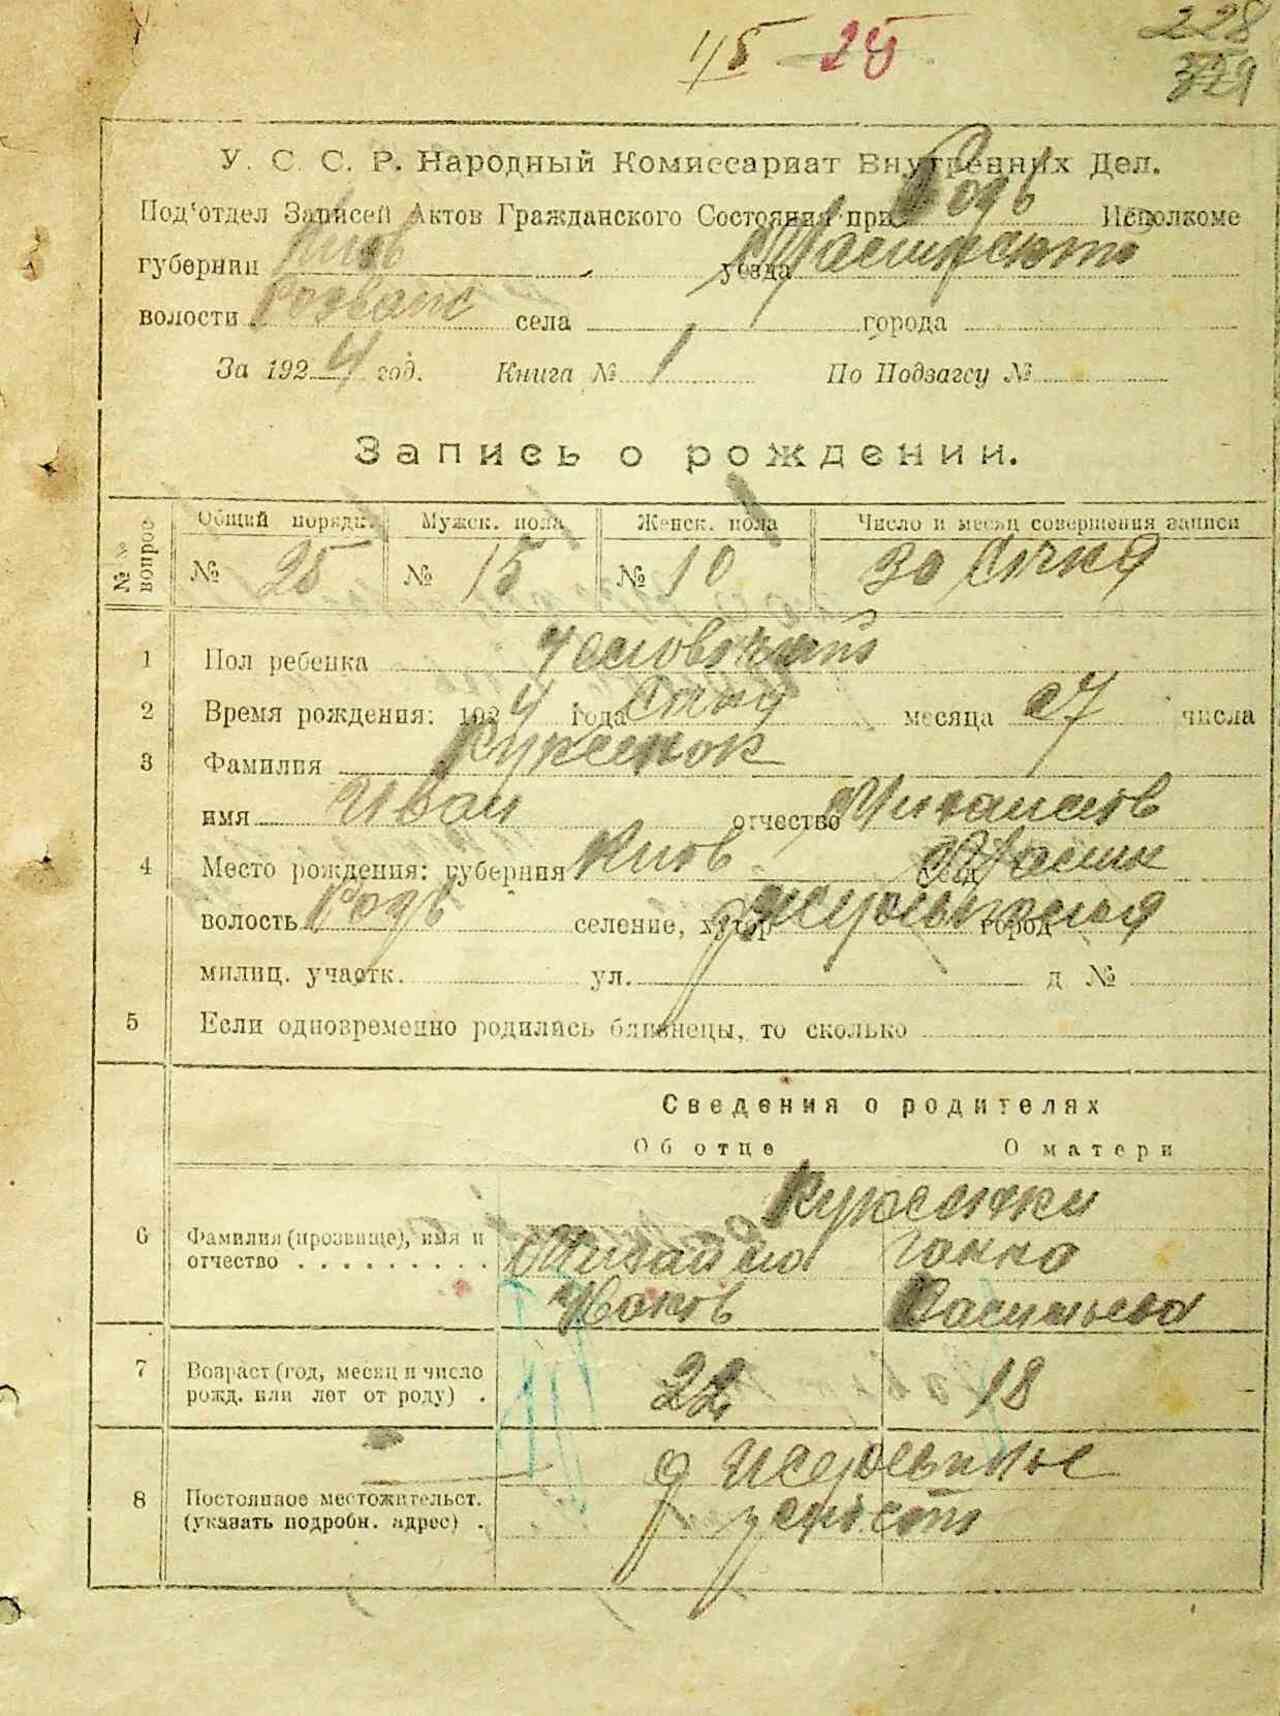 228
329
У. С. С. Р. Народный Комиссариат Внутренних Дел.
Под'отдел Записей Актов Гражданского Состояния при Исполкоме
губернии Київ уезда
волости Розваж села города
За 1924 год. Книга № 1 По Подзагсу №
Запись о рождении.
№№ вопрос Общий порядк. Мужск. пола Женск. пола Число и месяц совершения записи
№ 25 № 15 № 10 30 Січня
1 Пол ребенка Чоловічий
2 Время рождения: 1924 года Січня месяца 27 числа
3 Фамилия Курсенок
имя Иван отчество Михайлов
4 Место рождения: губерния Київ уезд
волость селение, хутор город
милиц. участк. ул. д №
5 Если одновременно родились близнецы, то сколько
Сведения о родителях
Об отце О матери
6 Фамилия (прозвище), имя и отчество
Курсенки
Михайло Ганна
Яков Васильева
7 Возраст (год, месяц и число рожд. или лет от роду) . 22 18
8 Постоянное местожительст. (указать подробн. адрес) .